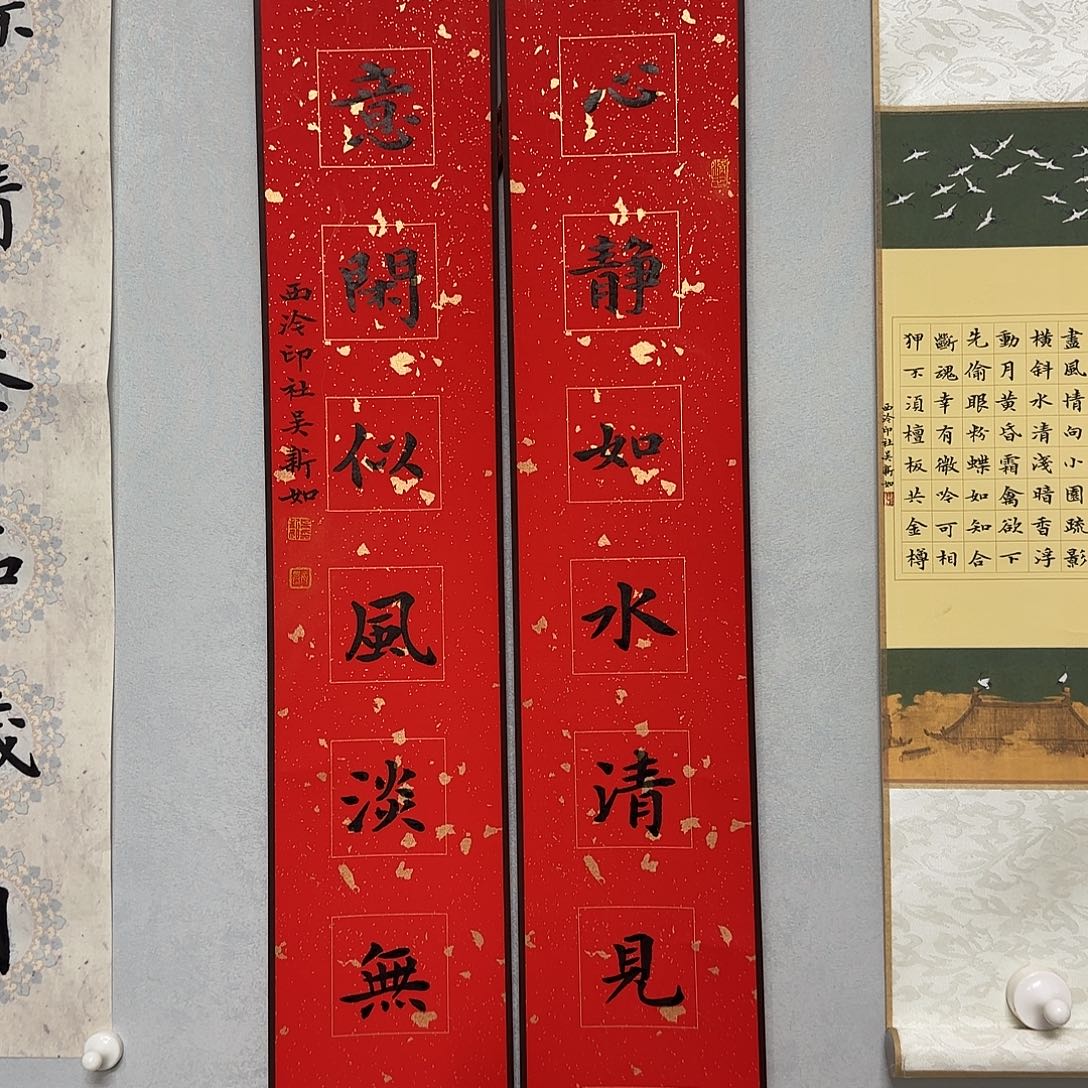 盡風情向小園疏影
橫斜水清淺暗香浮
動月黃昏霜禽欲下
先偷眼粉蝶如知合
斷魂幸有微吟可相
狎不須檀板共金樽
西泠印社吳新如
心靜如水清見
意閑似風淡無
西泠印社吳新如